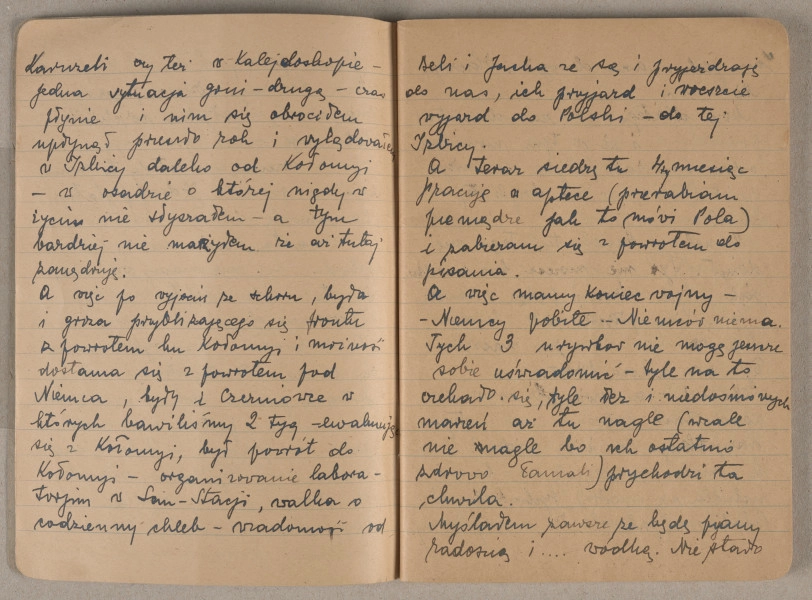 Karuzeli czy też w Kalejdoskopie –
jedna sytuacja goni – drugą – czas
płynie i nim się obróciłem
upłynął przeszło rok i wylądowałem
w Izbicy daleko od Kołomyi
– w osadzie o której nigdy w
życiu nie słyszałem – a tym
bardziej nie marzyłem że aż tutaj
zawędruję.
A więc po wyjściu ze schronu, była
i groza przybliżającego się frontu
z powrotem ku Kołomyi i możność
dostania się z powrotem pod
Niemca, były i Czerniowce w
których bawiliśmy 2 tyg – ewakuując
się z Kołomyi, był powrót do
Kołomyi – organizowanie labora-
torjum w San-Stacji, walka o
codzienny chleb – wiadomość od
Beli i Jacha że są i przyjeżdżają
do nas, ich przyjazd i wreszcie
wyjazd do Polski – do tej
Izbicy.
A teraz siedzę tu 4ty miesiąc
Pracuję w aptece (przerabiam
pieniądze jak to mówi Pola)
i zabieram się z powrotem do
pisania.
A więc mamy Koniec wojny –
– Niemcy pobite – Niemców niema.
Tych 3 urywków nie mogę jeszcze
sobie uświadomić – tyle na to
czekało się, tyle łez i niedośnionych
marzeń aż tu nagle (wcale
nie nagle bo ich ostatnio
zdrowo łamali) przychodzi ta
chwila.
Myślałem zawsze że będę pijany
radością i .... wódką. Nie stało